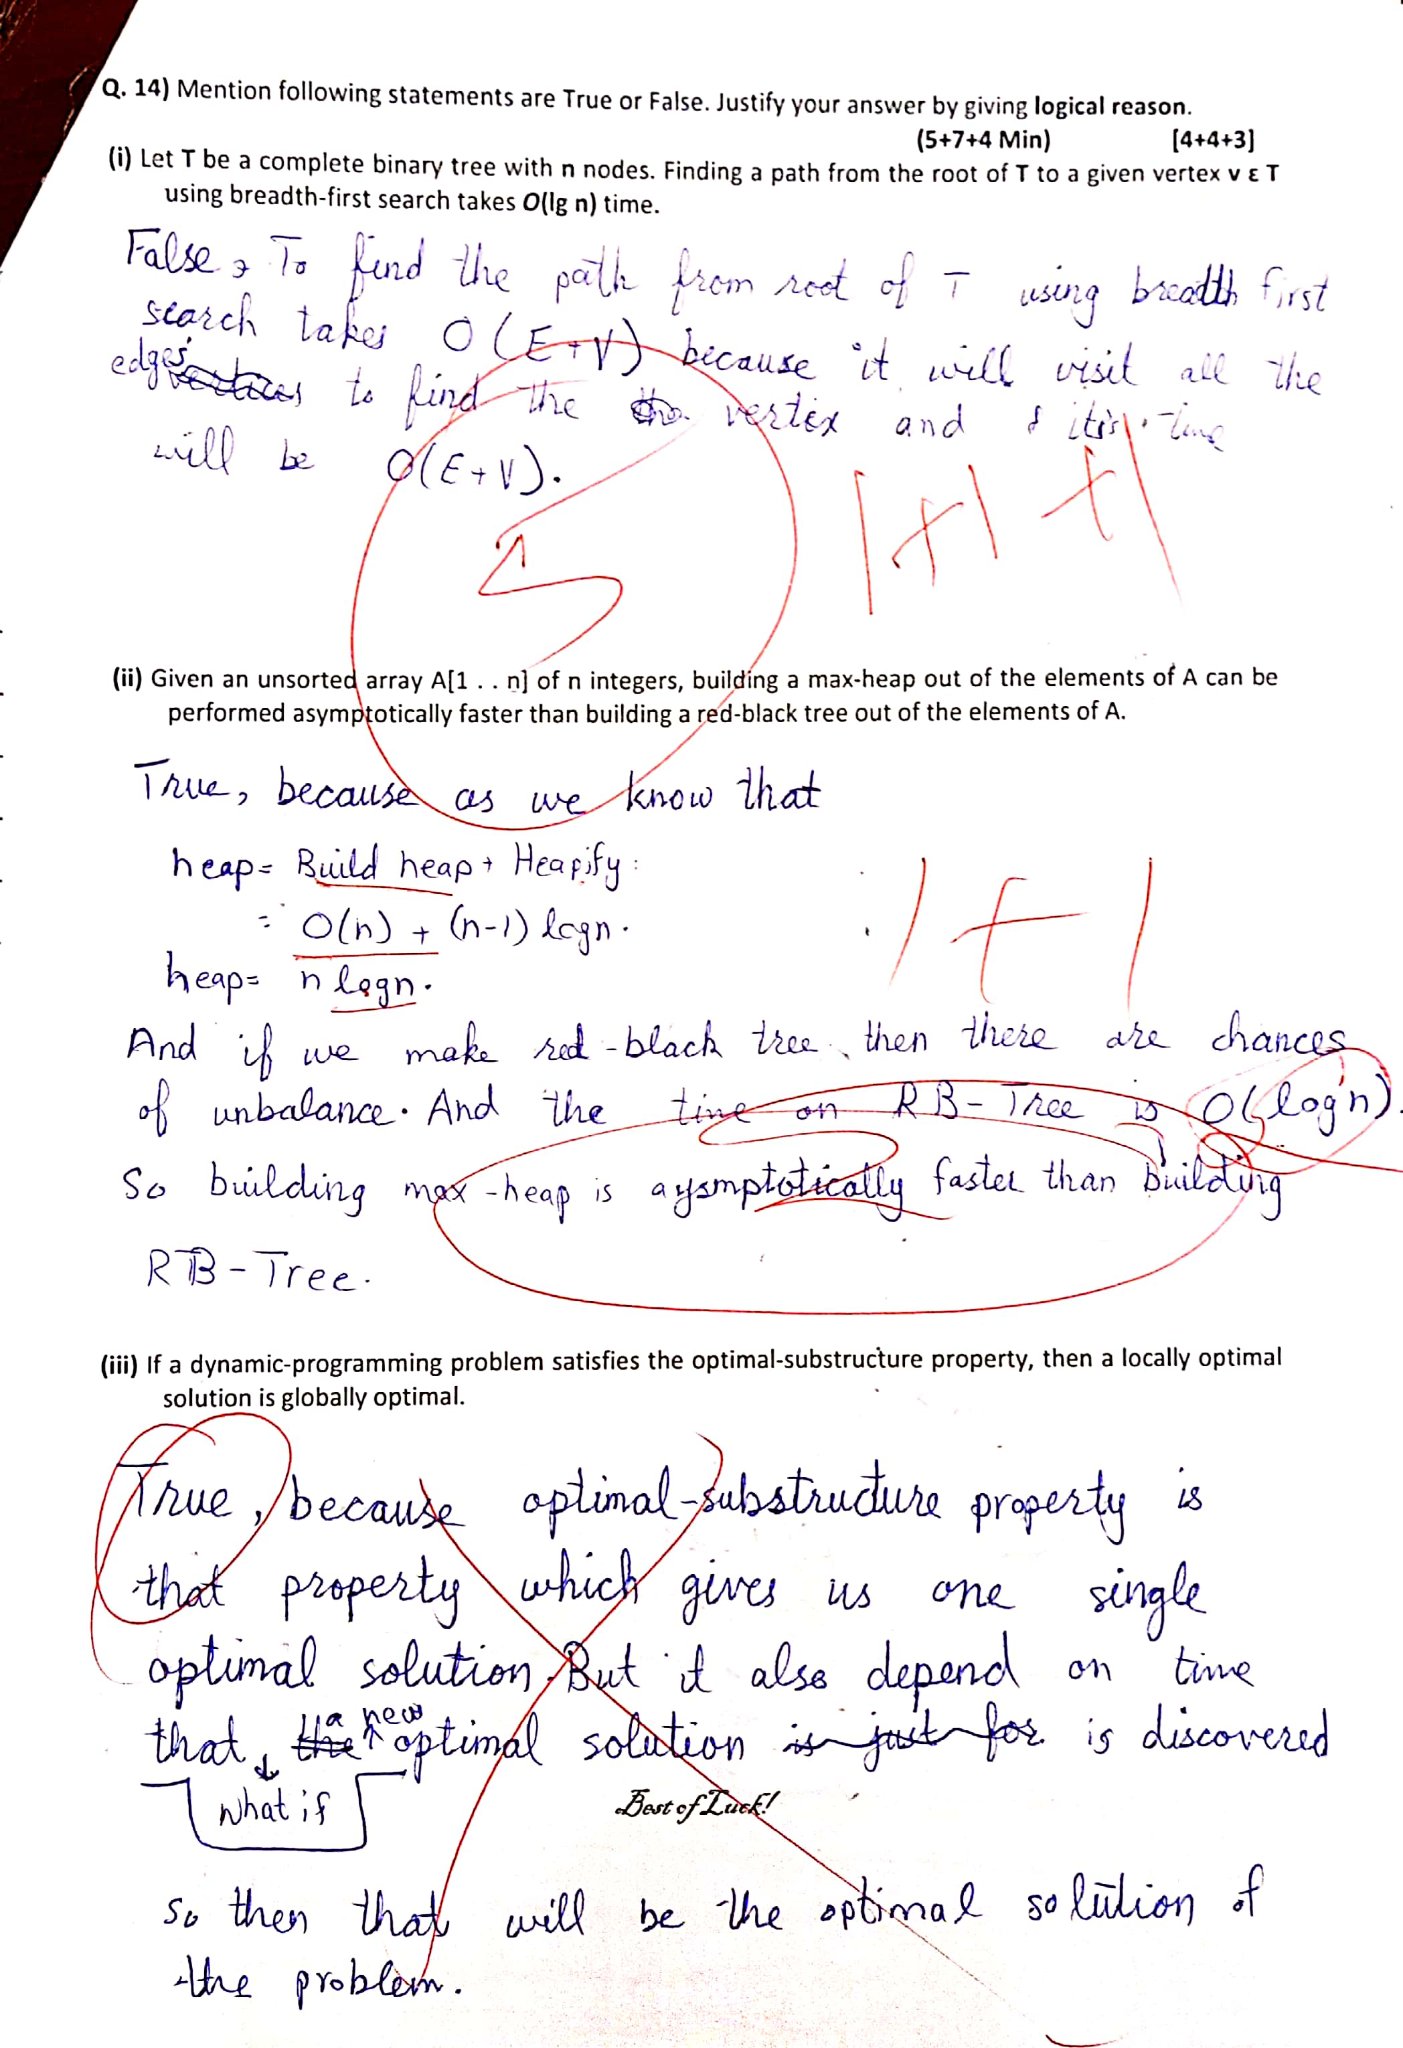 Q. 14) Mention following statements are True or False. Justify your answer by giving logical reason.
(5+7+4 Min) [4+4+3]
(i) Let T be a complete binary tree with n nodes. Finding a path from the root of T to a given vertex v ε T
using breadth-first search takes O(lg n) time.
False, To find the path from root of T using breadth first
search takes O(E+V) because it will visit all the
edges vertices to find the the vertex and it's time
will be O(E+V).
5
1+1+1
(ii) Given an unsorted array A[1 . . n] of n integers, building a max-heap out of the elements of A can be
performed asymptotically faster than building a red-black tree out of the elements of A.
True, because as we know that
heap= Build heap + Heapify
= O(n) + (n-1) logn.
heap= n logn.
1+1
And if we make red-black tree then there are chances
of unbalance. And the time on RB-Tree is O(logn).
So building max-heap is aysmptotically faster than building
RB-Tree.
(iii) If a dynamic-programming problem satisfies the optimal-substructure property, then a locally optimal
solution is globally optimal.
True, because optimal-substructure property is
that property which gives us one single
optimal solution. But it also depend on time
that, the a new optimal solution is just for is discovered
What if
Best of Luck!
so then that will be the optimal solution of
the problem.